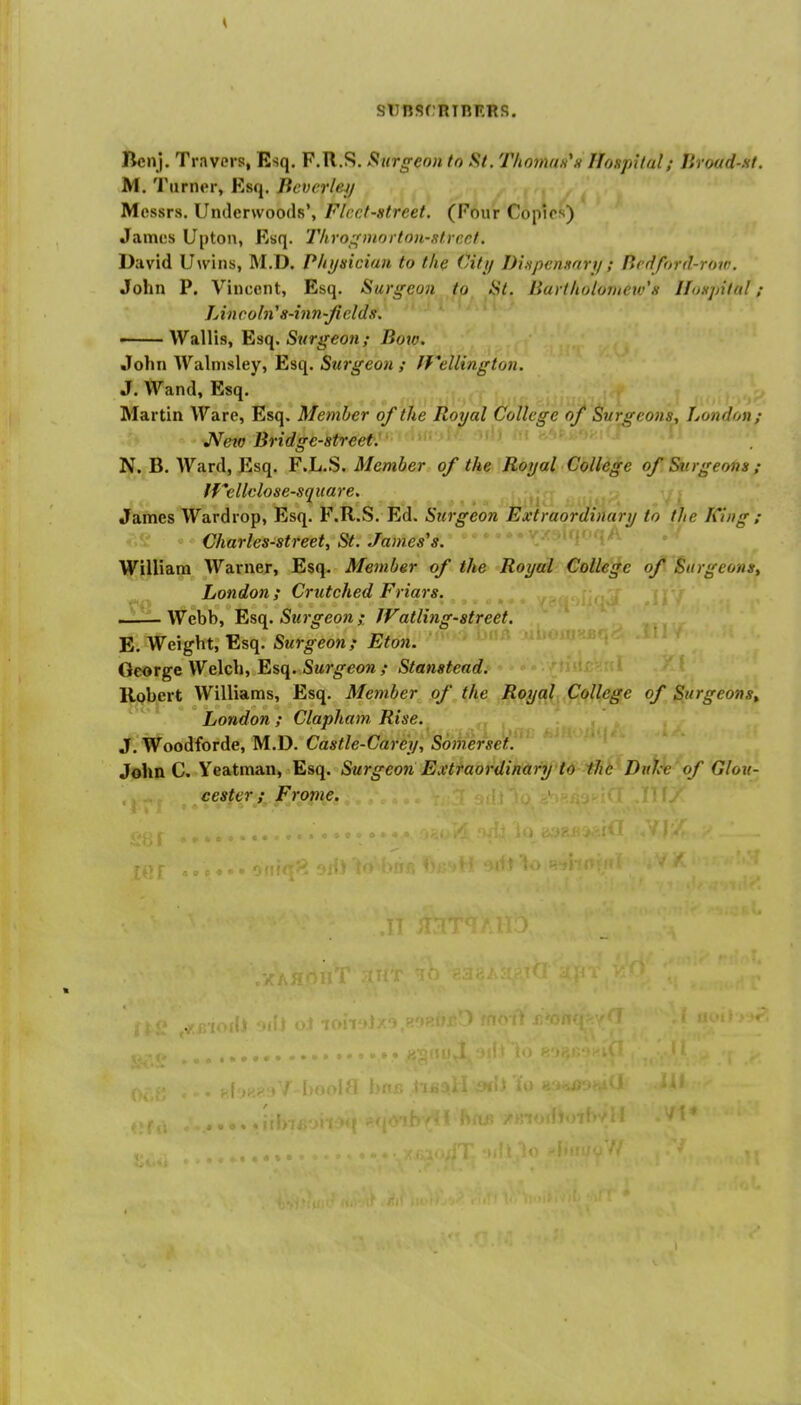 SUBSCRIBERS.
Benj. Travers, Esq. F.R.S. Surgeon to St. Thomas's Hospital; Broad-st.
M. Turner, Esq. Beverley
Messrs. Underwoods', Fleet-street. (Four Copies)
James Upton, Esq. Throgmorton-street.
David Uwins, M.D. Physician to the City Dispensary; Bedford-row.
John P. Vincent, Esq. Surgeon to St. Bartholomew's Hospital;
Lincoln's-inn-fields.
—— Wallis, Esq. Surgeon; Bow.
John Walmsley, Esq. Surgeon; Wellington.
J. Wand, Esq.
Martin Ware, Esq. Member of the Royal College of Surgeons, London;
New Bridge-street.
N. B. Ward, Esq. F.L.S. Member of the Royal College of Surgeons;
Wellclose-square.
James Wardrop, Esq. F.R.S. Ed. Surgeon Extraordinary to the King;
Charles-street, St. James's.
William Warner, Esq. Member of the Royal College of Surgeons,
London; Crutched Friars.
—— Webb, Esq. Surgeon; Watling-street.
E. Weight, Esq. Surgeon; Eton.
George Welch, Esq. Surgeon; Stanstead.
Robert Williams, Esq. Member of the Royal College of Surgeons,
London; Clapham Rise.
J. Woodforde, M.D. Castle-Carey, Somerset.
John C. Yeatman, Esq. Surgeon Extraordinary to the Duke of Glou-
cester; Frome.